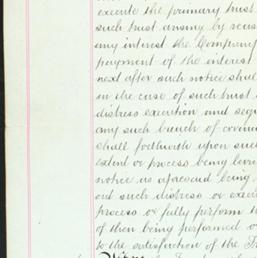 execute the primary trust
such trust arising by reas
any interest the Company
payment of the interest
next after such notice shall
in the case of such trust
distress execution and sequ
any such breach of covena
shall forthwith upon such
extent or process being levi
notice as aforesaid being
out such distress or exec
process or fully perform
of them being performed o
to the satisfaction of the Tr